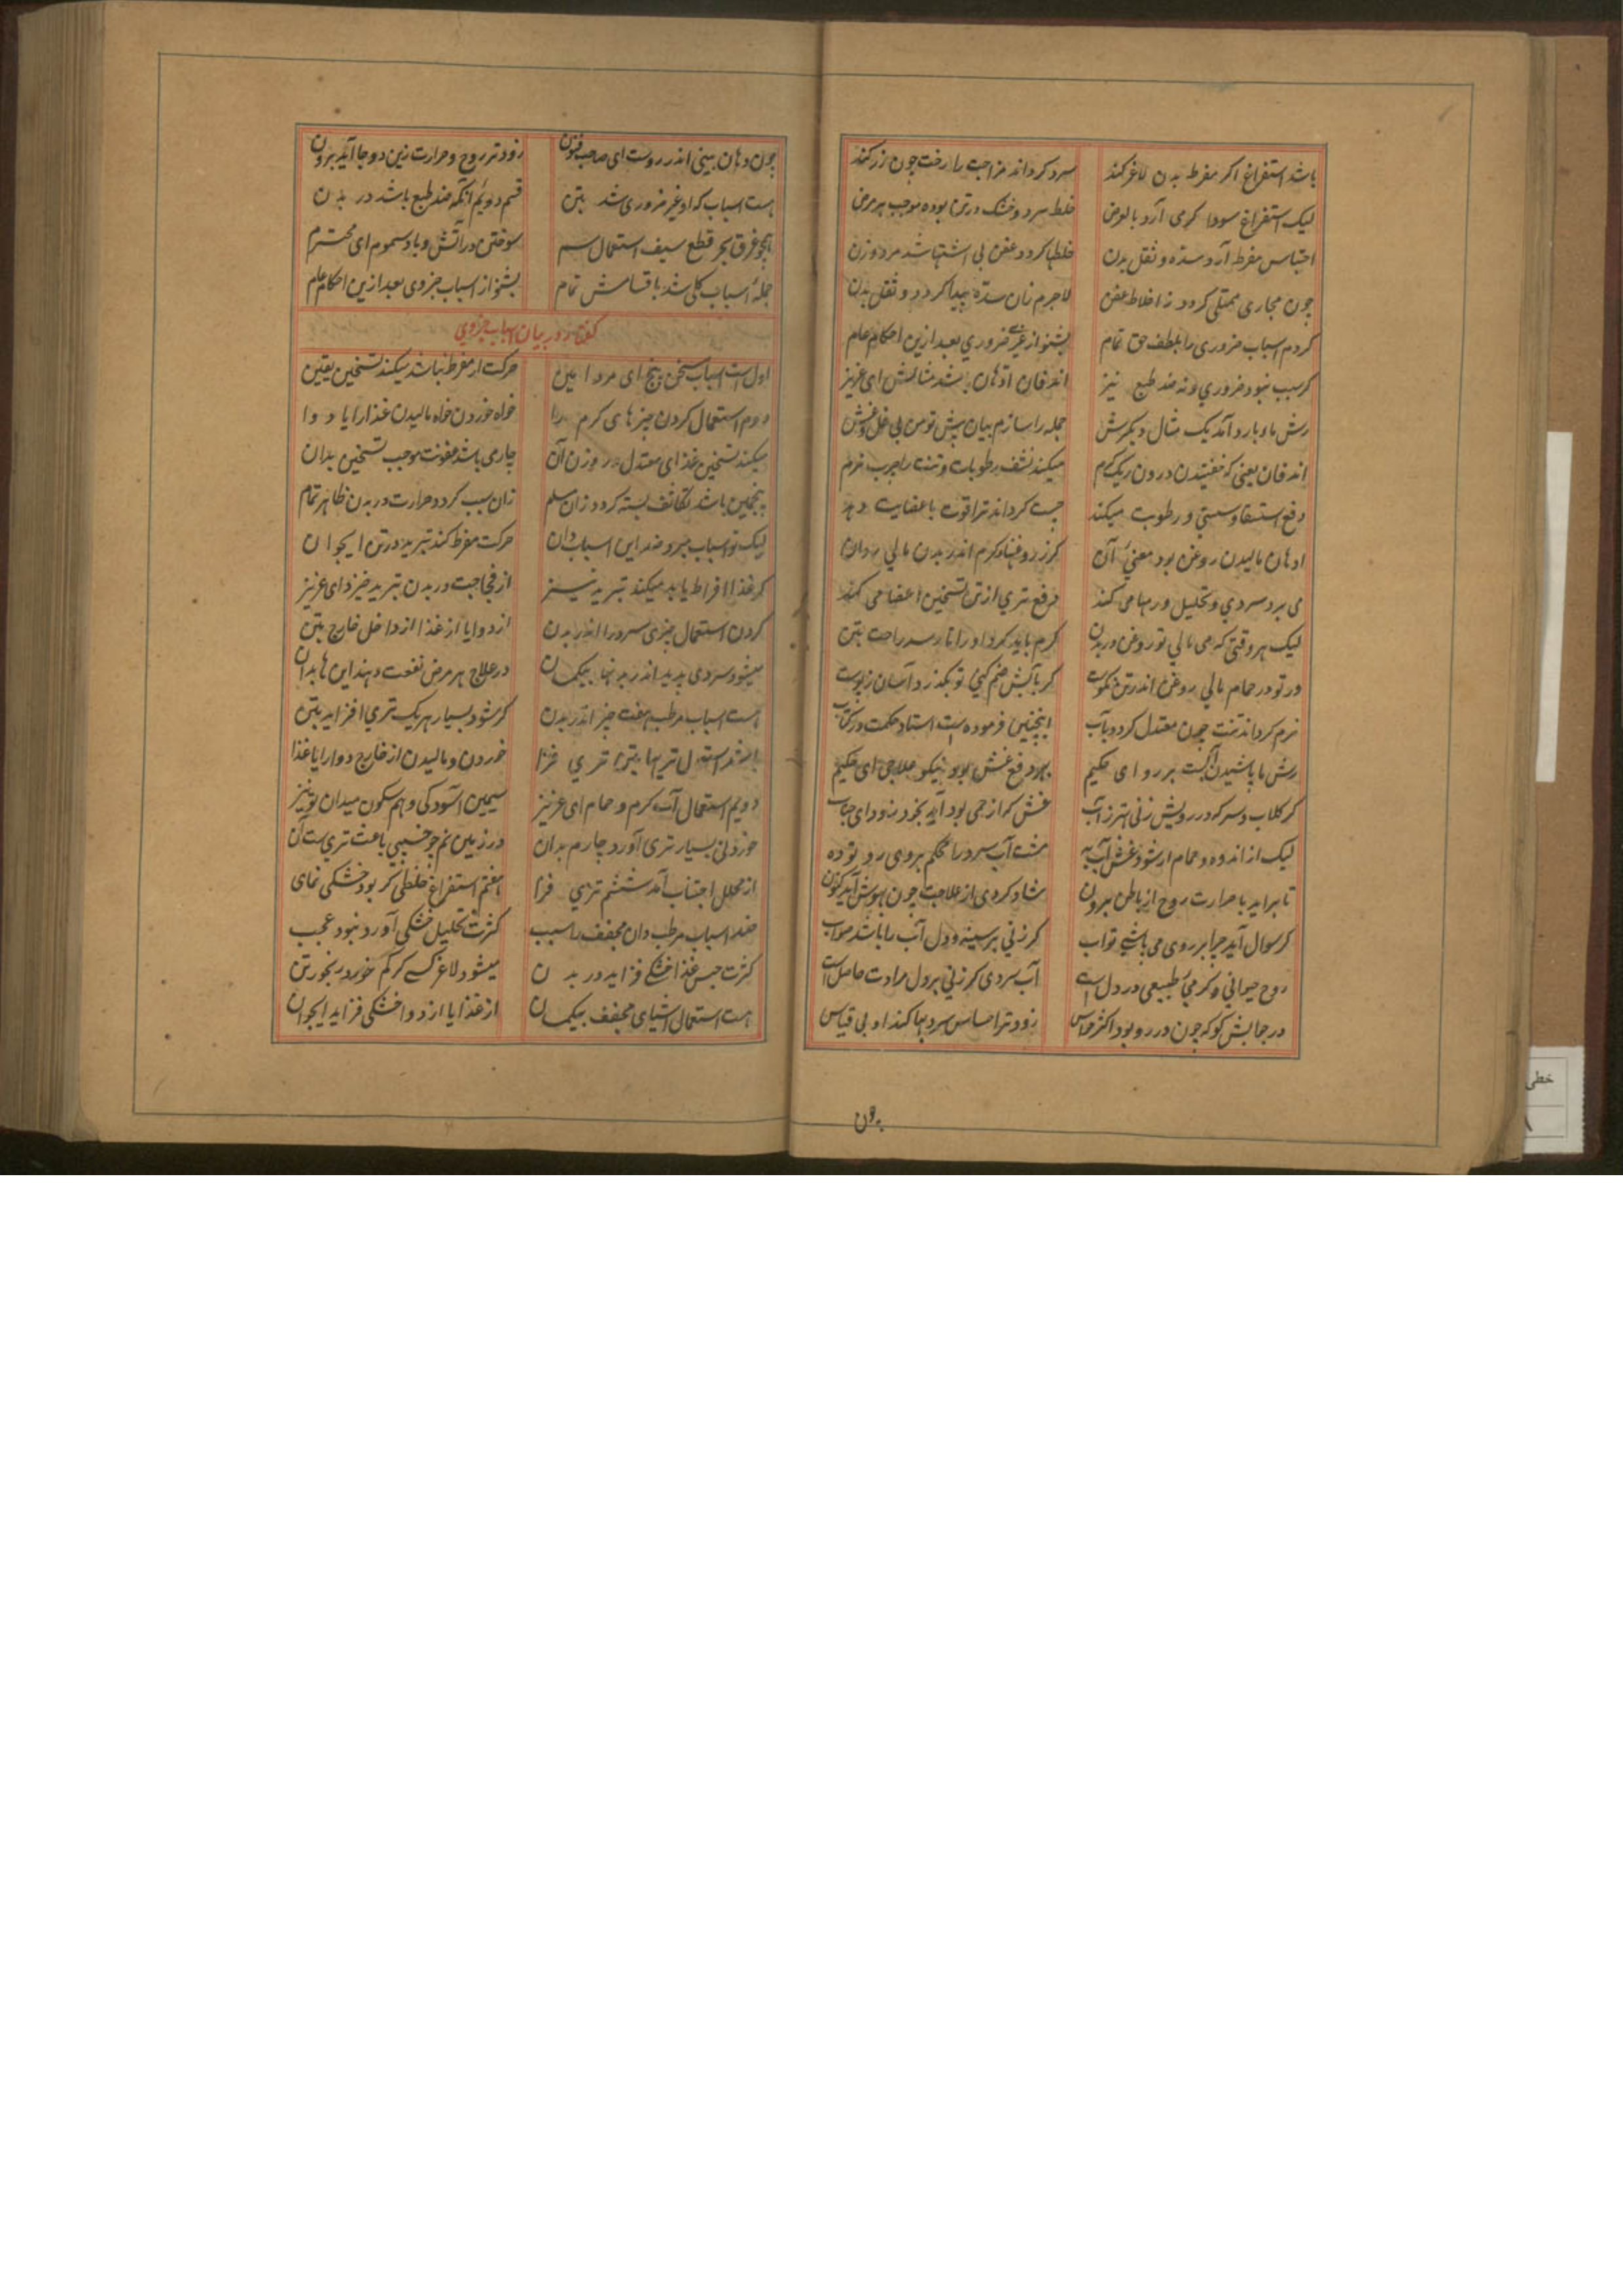 باشد استفراغ اگر مفرط بدن لاغر کند سرد کرداند مزاجت را رخت چون زر کند
لیک استفراغ سودا کرمی آرد بالعرض خلط سرد و خشک در تن بوده موجب هر مرض
احتباس مفرط آرد سده و ثقل بدن خلطها کردد عفن بی اشتها شد مرد و زن
چون مجاری ممتلی کردد ز اخلاط عفن لاجرم زان سده پیدا کردد و ثقل بدن
کردم اسباب ضروری را بلطف حق تمام بشنو از غیر ضروری بعد ازین احکام عام
کر سبب نبود ضروری و نه ضد طبع نیز اندفان ادهان باشد مثالش ای عزیز
رش ماء بارد آمد یک مثال دیکرش جمله را سازم بیان پیش تو من بی غل و غش
اندفان یعنی که خفتیدن درون ریک کرم میکند نشف رطوبات و تنت را چرب نرم
دفع استسقا و سستی و رطوبت میکند چست کرداند ترا قوت باعضایت دهد
ادهان مالیدن روغن بود معنی آن کر ز روغنهاء کرم اندر بدن مالی روان
می برد سردی و تحلیل ورمها می کند رفع تری از تن تسخین اعضا می کند
لیک هر وقتی که می مالی تو روغن در بدن کرم باید کرد او را تا رسد راحت بتن
ور تو در حمام مالی روغن اندر تن نکوست کر بآتش ضم کنی تو بکذرد آسان ز پوست
نرم کرداند تنت چون معتدل کردد بآب اینچنین فرموده است استاد حکمت در کتاب
رش ما پاشیدن آبست بر رو ای حکیم بهر دفع غش بود نیکو علاجی ای حکیم
کر کلاب و سرکه در رویش زنی بهتر ز آب غش کر از حمی بود آید بخود زود ای جناب
لیک از اندوه و حمام ار شود غش آب به مشت آب سرد را محکم بروی رو تو ده
تا برآید با حرارت روح از باطن برون شاد کردی از علاجت چون بهوش آید کنون
کر سوال آید چرا بر روی می پاشی تو آب کر زنی بر سینه و دل آب را باشد صواب
روح حیوانی و کرمی طبیعی در دل است آب سردی کر زنی بر دل مرادت حاصل است
در جوابش کو که چون در رو بود اکثر حواس زودتر احساس سردیها کند او بی قیاس
چون
چون دهان بینی اندر روست ای صاحب فنون زودتر روح و حرارت زین دو جا آید برون
هست اسباب که او غیر ضروری شد بتن قسم دویم آنکه ضد طبع باشد در بدن
همچو غرق بحر قطع سیف استعمال سم سوختن در آتش و باد سموم ای محترم
جمله اسباب کلی شد باقسامش تمام بشنو از اسباب جزوی بعد ازین احکام عام
گفتار در بیان اسباب جزوی
اول است اسباب مسخن پنج ای مرد امین حرکت ار مفرط نباشد میکند تسخین یقین
دوم استعمال کردن چیزهای کرم را خواه خوردن خواه مالیدن غذا را یا دوا
میکند تسخین غذای معتدل در وزن آن چارمی باشد عفونت موجب تسخین بدان
پنجمین باشد تکاثف بسته کردد زان مسام زان سبب کردد حرارت در بدن ظاهر تمام
لیک تو اسباب مبرد ضد این اسباب دان حرکت مفرط کند تبرید در تن ای جوان
کر غذا افراط یابد میکند تبرید نیز از فجاجت در بدن تبرید خیزد ای عزیز
کردن استعمال چیزی سرد را اندر بدن از دوا یا از غذا از داخل خارج بتن
میشود سردی پدید اندر بدنها بیکمان در علاج هر مرض نفعت دهند این ها بدان
هست اسباب مرطب هفت چیز اندر بدن کر شود بسیار هر یک تری افزاید بتن
باشد استعمال تریها بتن تری فزا خوردن و مالیدن از خارج دوا را یا غذا
دویم استعمال آب کرم و حمام ای عزیز سیمین آسودکی و هم سکون میدان تو نیز
خوردنی بسیار تری آورد چارم بدان در زمین نم چو خسبی باعث تری ست آن
از محلل اجتناب آمد ششم تری فزا هفتم استفراغ خلطی کر بود خشکی نمای
ضد اسباب مرطب دان مجفف را سبب کثرت تحلیل خشکی آورد نبود عجب
کثرت حبس غذا خشکی فزاید در بدن میشود لاغر کسی کر کم خورد رنجور تن
هست استعمال اشیای مجفف بیکمان از غذا یا از دوا خشکی فزاید ای جوان
خطی